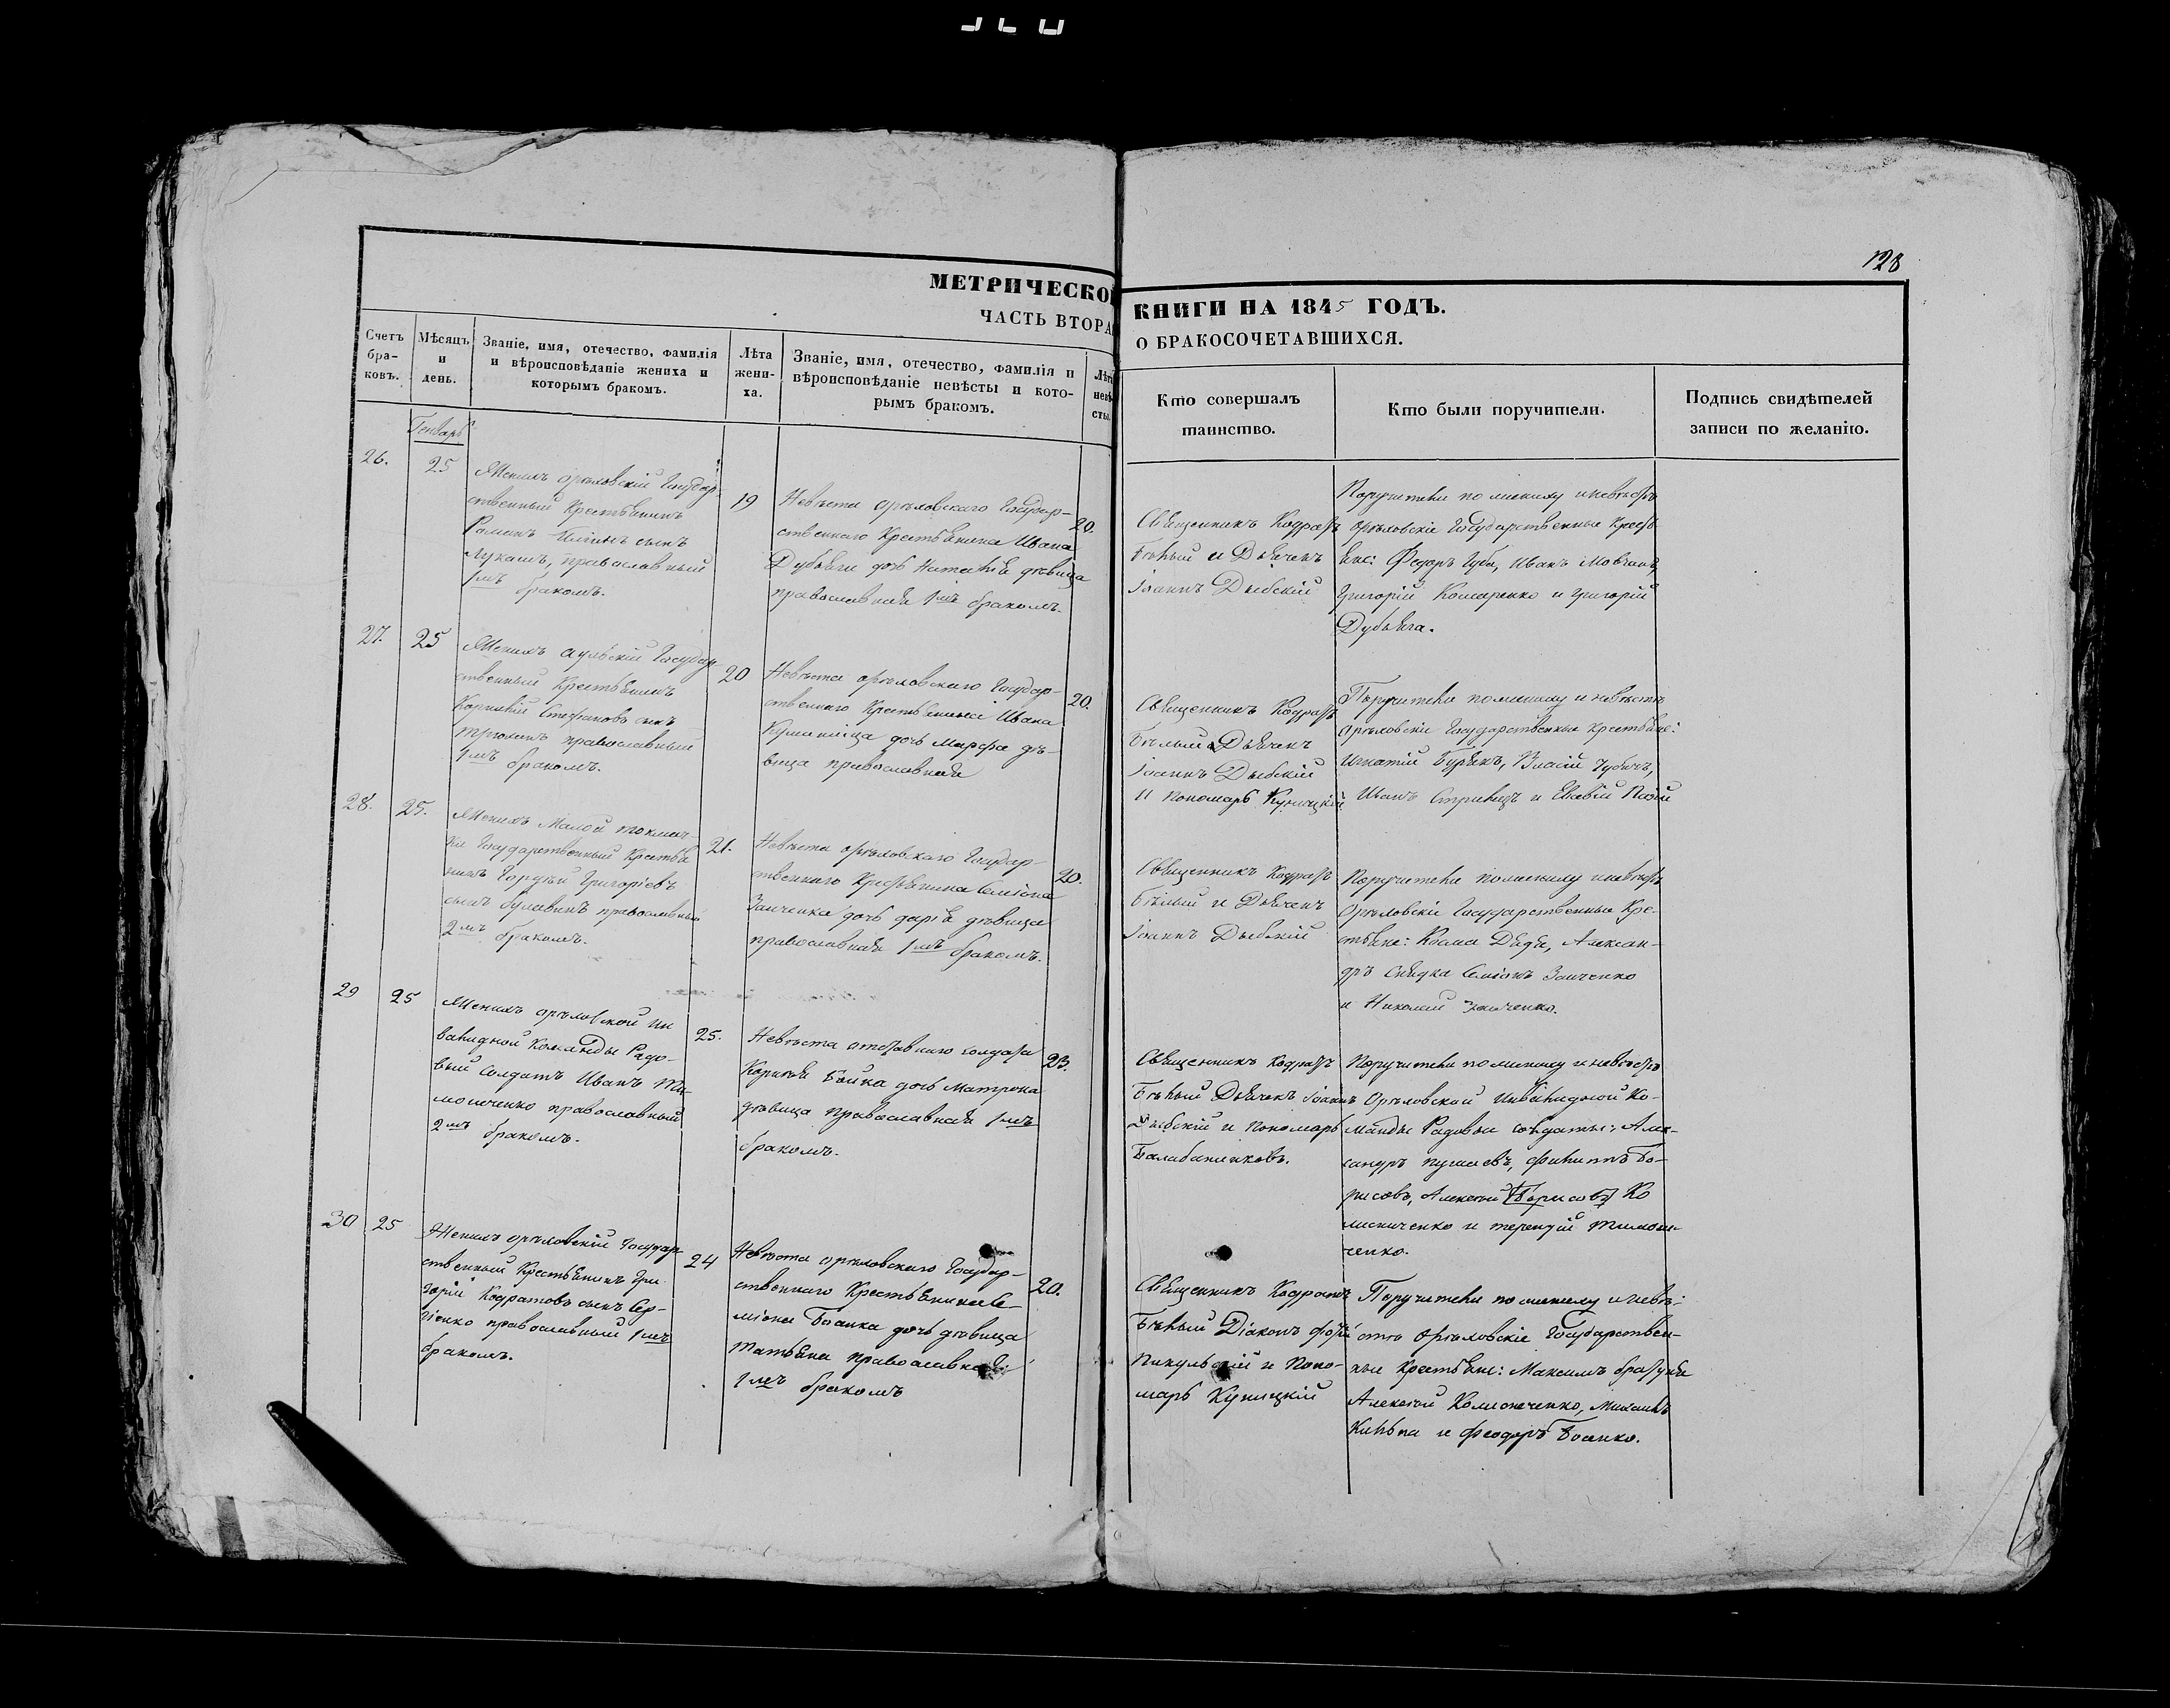 128
МЕТРИЧЕСКОЙ КНИГИ НА 1845 ГОДЪ.
ЧАСТЬ ВТОРАЯ О БРАКОСОЧЕТАВШИХСЯ.
Счетъ бра-ковъ.
Мѣсяцъ и день.
Званіе, имя, отечество, фамилія и вѣроисповѣданіе жениха и которымъ бракомъ.
Лѣта жени-ха.
Званіе, имя, отечество, фамилія и вѣроисповѣданіе невѣсты и кото-рымъ бракомъ.
Лѣта невѣ-сты.
Кто совершалъ таинство.
Кто были поручители.
Подпись свидѣтелей записи по желанію.
Генварь
26.
25
Женихъ орѣховскій Государ-
ственный Крестьянинъ
Романъ сынъ
Лукашъ, православный
1мъ бракомъ.
19
Невѣста орѣховскаго Государ-
ственнаго Крестьянина Ивана
дочь Наталія дѣвица
православная 1мъ бракомъ.
20.
Священникъ Кодратъ
Бѣлый и Дьячекъ
Іоаннъ Дыбскій
Поручители по жениху и невѣстѣ
орѣховскіе Государственные Кресть
яне: Федоръ Губа, Иванъ Мовчанъ,
Григорій Комаренко и Григорій
27.
25
Женихъ аульскій Государ
ственный Крестьянинъ
Корнилій Стефановъ сынъ
православный
1мъ бракомъ.
20
Невѣста орѣховскаго Государ-
ственнаго Крестьянина Ивана
дочь Марфа дѣ-
вица православная
20.
Священникъ Кодратъ
Бѣлый Дьячекъ
Іоаннъ Дыбскій
и пономарь Куницкій
Поручители по жениху и невѣстѣ
орѣховскіе Государственные крестьяне:
Игнатій Бурякъ,
Иванъ и
28.
25.
Женихъ Малой токмач-
ки Государственный Крестья
нинъ Гордѣй Григоріевъ
сынъ православный
2мъ бракомъ.
21.
Невѣста орѣховскаго Государ-
ственнаго Крестьянина Симіона
Заиченка дочь Дарія дѣвица
православная 1мъ бракомъ.
20.
Священникъ Кодратъ
Бѣлый и Дьячекъ
Іоаннъ Дыбскій
Поручители по жениху и невѣстѣ
Орѣховскіе Государственные Кре-
стьяне: Косма Александръ
Симіонъ Заиченко
и Николай Заиченко.
29
25
Женихъ орѣховской ин
валидной Команды Рядо-
вый солдатъ Иванъ Ти-
мошенко православный
2мъ бракомъ.
25.
Невѣста отставнаго солдата
Корнѣя Бойка дочь Матрона
дѣвица православная 1мъ
бракомъ.
23.
Священникъ Кодратъ
Бѣлый Дьячекъ Іоаннъ
Дыбскій и пономарь
Балабаненковъ.
Поручители по жениху и невѣстѣ
Орѣховской Инвалидной Ко-
манды Рядовые солдаты: Алек-
сандръ Филиппъ Бо-
рисовъ, Алексѣй [Борисовъ] Ко
лисниченко и терентій Тимош-
ченко.
30
25
Женихъ орѣховскій Государ
ственный Крестьянинъ Гри
горій Кодратовъ сынъ Сер-
гіенко православный 1мъ
бракомъ.
24
Невѣста орѣховскаго Государ-
ственнаго Крестьянина Си-
міона дочь дѣвица
Татьяна православная
1мъ бракомъ
20.
Священникъ Кодратъ
Бѣлый Діаконъ
и Поно-
марь Куницкій
Поручители по жениху и невѣ-
стѣ Орѣховскіе Государствен-
ные Крестьяне: Максимъ
Алексѣй Михаилъ
и Феодоръ